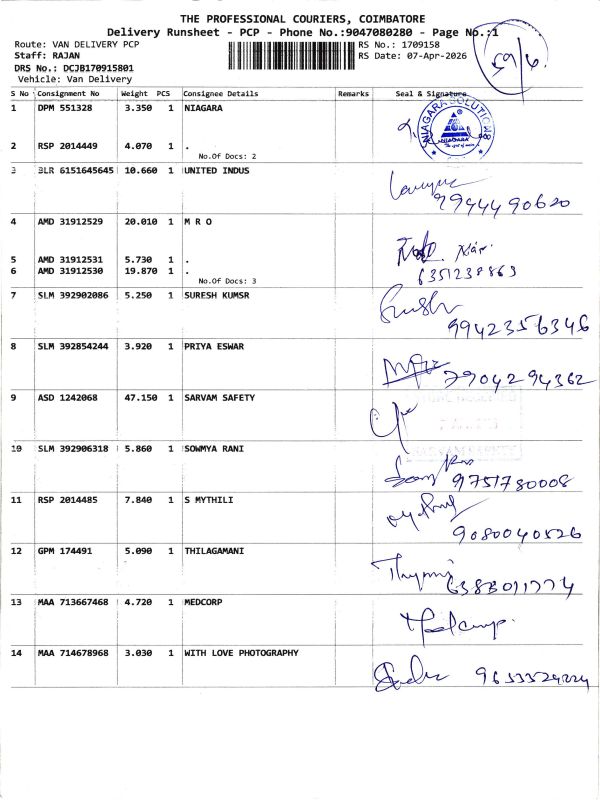 THE PROFESSIONAL COURIERS, COIMBATORE
Delivery Runsheet - PCP - Phone No.:9047080280 - Page No.:1
Route: VAN DELIVERY PCP
RS No.: 1709158
Staff: RAJAN
RS Date: 07-Apr-2026
DRS No.: DCJB170915801
Vehicle: Van Delivery
S No Consignment No Weight PCS Consignee Details Remarks Seal & Signature
1 DPM 551328 3.350 1 NIAGARA
NIAGARA
2 RSP 2014449 4.070 1 .
No.Of Docs: 2
3 BLR 6151645645 10.660 1 UNITED INDUS
9944490620
4 AMD 31912529 20.010 1 M R O
5 AMD 31912531 5.730 1 .
6 AMD 31912530 19.870 1 .
6351238863
No.Of Docs: 3
7 SLM 392902086 5.250 1 SURESH KUMSR
9942356346
8 SLM 392854244 3.920 1 PRIYA ESWAR
7904294362
9 ASD 1242068 47.150 1 SARVAM SAFETY
10 SLM 392906318 5.860 1 SOWMYA RANI
9751780008
11 RSP 2014485 7.840 1 S MYTHILI
9080040526
12 GPM 174491 5.090 1 THILAGAMANI
13 MAA 713667468 4.720 1 MEDCORP
14 MAA 714678968 3.030 1 WITH LOVE PHOTOGRAPHY